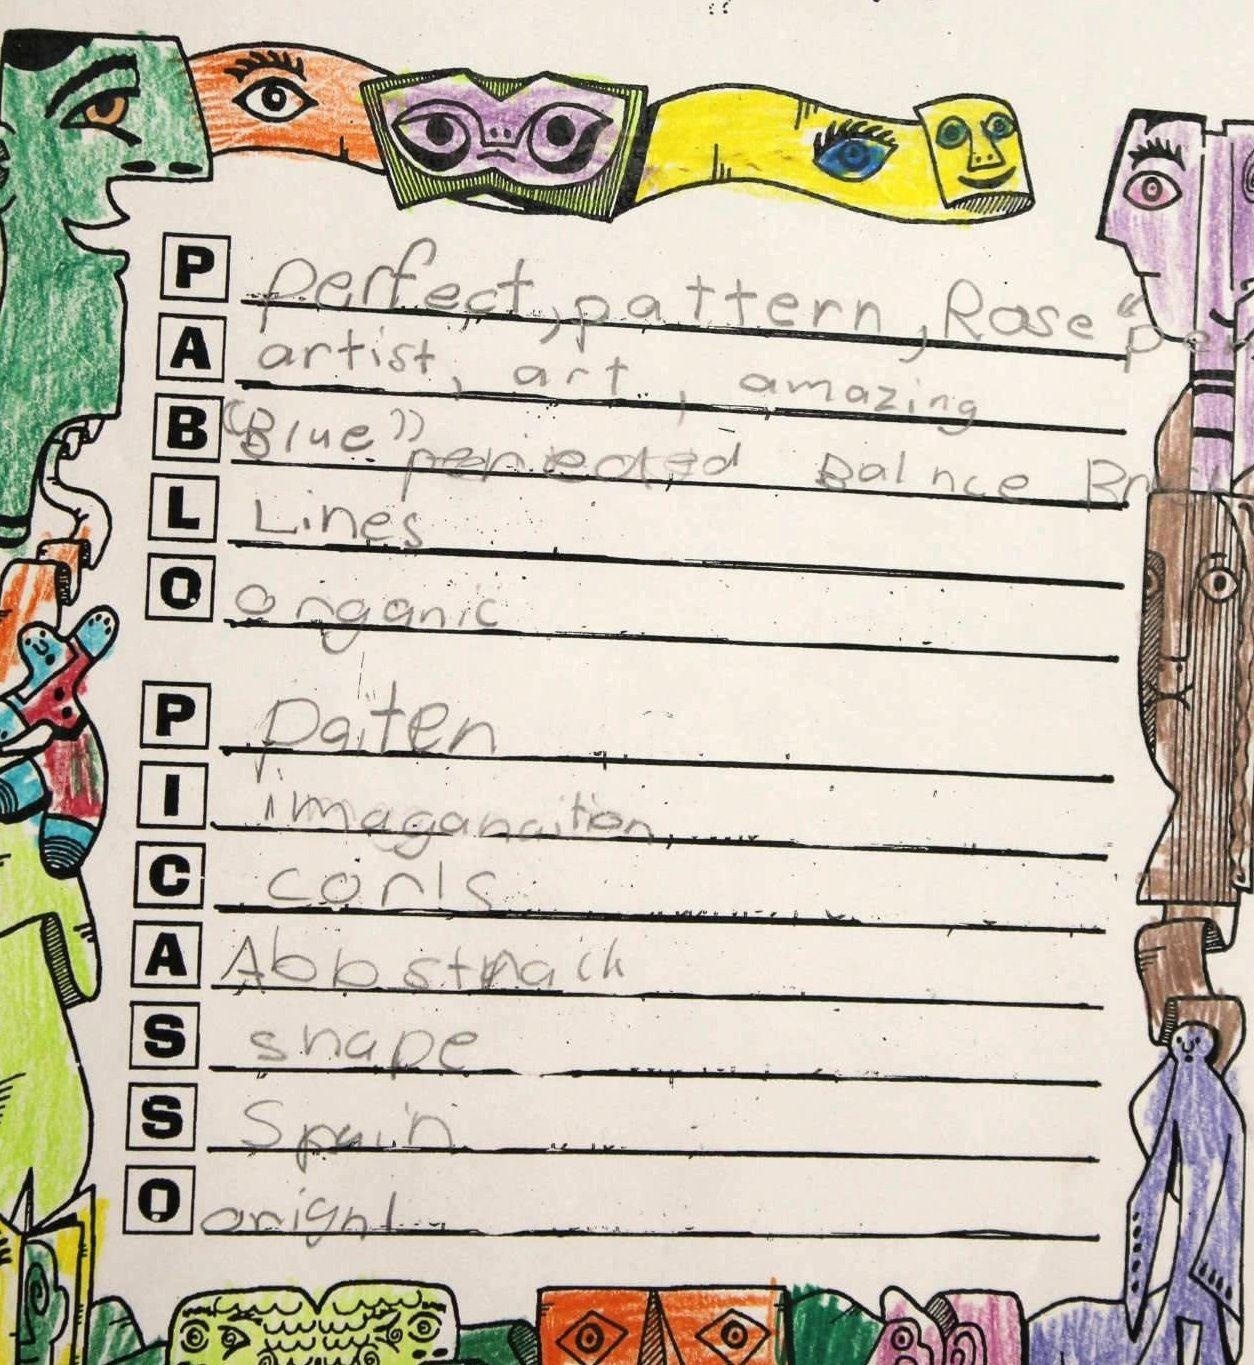 P perfect, pattern, Rose "
A artist, art, amazing
B "Blue" Balnce
L Lines
O organic
P Paiten
I imaganaition,
C corls
A Abbstrach
S shape
S Spain
O orignl